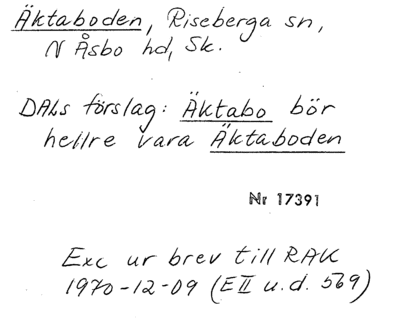 Äktaboden, Riseberga sn,
N Åsbo hd, Sk.
DALs förslag: Äktabo bör
hellre vara Äktaboden
Nr 17391
Exc ur brev till RAK
1970-12-09 (EII u.d. 569)